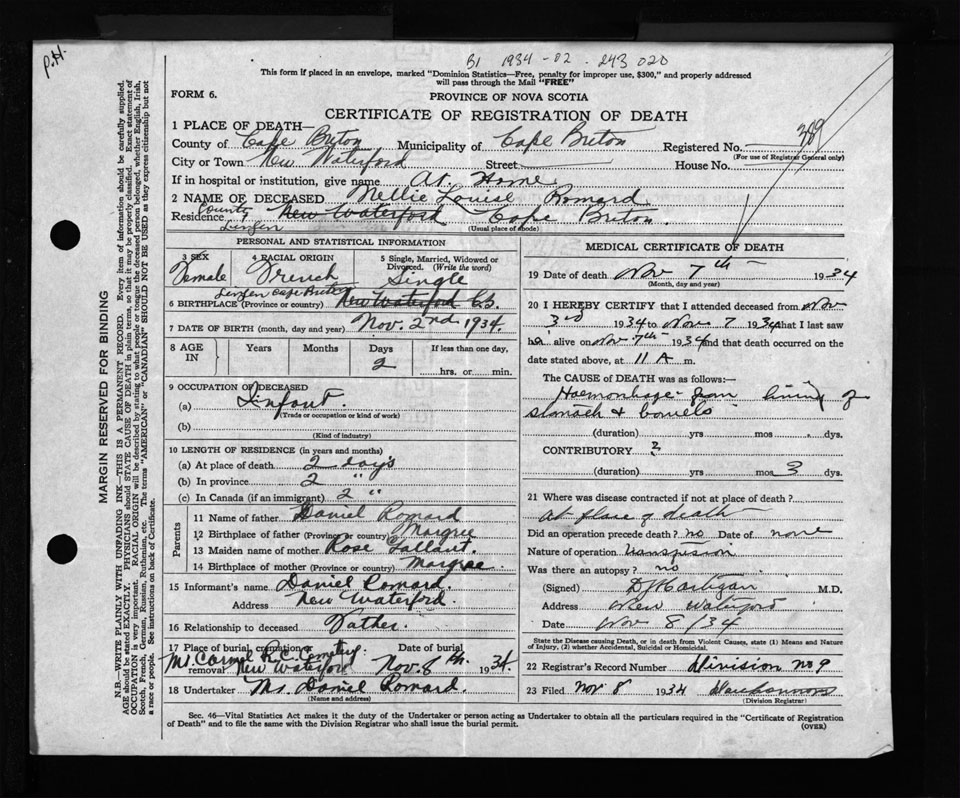 P.H.
B1 1934-02. 243 020
This form if placed in an envelope, marked "Dominion Statistics—Free, penalty for improper use, $300," and properly addressed
will pass through the Mail "FREE"
FORM 6.
PROVINCE OF NOVA SCOTIA
CERTIFICATE OF REGISTRATION OF DEATH
1 PLACE OF DEATH—
County of Cape Breton Municipality of Cape Breton Registered No. 389
(For use of Registrar General only)
City or Town New Waterford Street House No.
If in hospital or institution, give name At Home
2 NAME OF DECEASED Nellie Louise Romard
Residence County New Waterford Cape Breton
(Usual place of abode)
PERSONAL AND STATISTICAL INFORMATION
3 SEX Female
4 RACIAL ORIGIN French
5 Single, Married, Widowed or Divorced. (Write the word) Single
Cape Breton
6 BIRTHPLACE (Province or country) New Waterford C.B.
7 DATE OF BIRTH (month, day and year) Nov. 2nd 1934.
8 AGE IN Years Months Days 2 If less than one day, hrs. or min.
9 OCCUPATION OF DECEASED
(a) Infant.
(Trade or occupation or kind of work)
(b)
(Kind of industry)
10 LENGTH OF RESIDENCE (in years and months)
(a) At place of death 2 days
(b) In province 2 "
(c) In Canada (if an immigrant) 2 "
Parents
11 Name of father Daniel Romard
12 Birthplace of father (Province or country) Margree
13 Maiden name of mother Rose Gallant.
14 Birthplace of mother (Province or country) Margree.
15 Informant's name Daniel Romard.
Address New Waterford.
16 Relationship to deceased Father.
17 Place of burial, cremation or removal Mt Carmel R.C. Cemetery. New Waterford Nov. 8th. 1934.
18 Undertaker Mr. Daniel Romard.
(Name and address)
MEDICAL CERTIFICATE OF DEATH
19 Date of death Nov 7th 1934
(Month, day and year)
20 I HEREBY CERTIFY that I attended deceased from Nov
3rd 1934 to Nov 7 1934 that I last saw
h alive on Nov 7th 1934 and that death occurred on the
date stated above, at 11 A m.
The CAUSE of DEATH was as follows:—
Haemorrhage from lining of
stomach & bowels
(duration) yrs mos. dys.
CONTRIBUTORY ?
(duration) yrs mos 3 dys.
21 Where was disease contracted if not at place of death?
At place of death
Did an operation precede death? no Date of none
Nature of operation transfusion
Was there an autopsy? no
(Signed) D J Hartigan M.D.
Address New Waterford
Date Nov 8/34
State the Disease causing Death, or in death from Violent Causes, state (1) Means and Nature
of Injury, (2) whether Accidental, Suicidal or Homicidal.
22 Registrar's Record Number Division no 9
23 Filed Nov 8 1934
(Division Registrar)
Sec. 46—Vital Statistics Act makes it the duty of the Undertaker or person acting as Undertaker to obtain all the particulars required in the "Certificate of Registration
of Death" and to file the same with the Division Registrar who shall issue the burial permit.
(OVER)
MARGIN RESERVED FOR BINDING
N.B.—WRITE PLAINLY WITH UNFADING INK—THIS IS A PERMANENT RECORD. Every item of information should be carefully supplied.
AGE should be stated EXACTLY. PHYSICIANS should STATE CAUSE OF DEATH in plain terms, so that it may be properly classified. Exact statement of
OCCUPATION is very important. RACIAL ORIGIN will be described by stating to what people or tongue the deceased person belonged, whether English, Irish,
Scotch, French, German, Russian, Ruthenian, etc. The terms "AMERICAN" or "CANADIAN" SHOULD NOT BE USED as they express citizenship but not
a race or people. See instructions on back of Certificate.